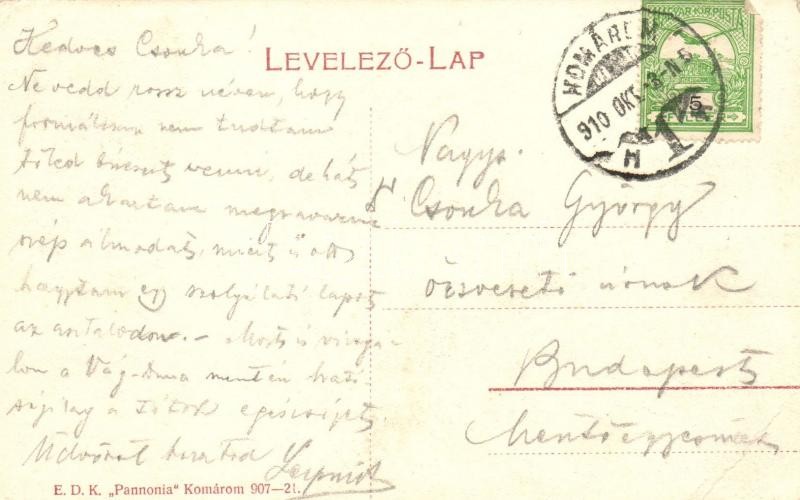 LEVELEZŐ-LAP
Kedves Csonka!
Ne vedd rossz néven, hogy
formálisan nem tudtam
tőled búcsút venni, de hát
nem akartam megzavarni
szép álmodat, mit is ott
hagytam egy szolgálati lapot
az asztalodon. - Most is
lom a Vág-Duna mentén
a Tótok egészségét.
Üdvözöl barátod
MAGYAR KIR. POSTA
5
KOMÁROM
910 OKT. -3-N 5
H
Nagys.
Csonka György
őrsvezető úrnak
Budapest
Mentőegyesület
E. D. K. „Pannonia" Komárom 907—21.